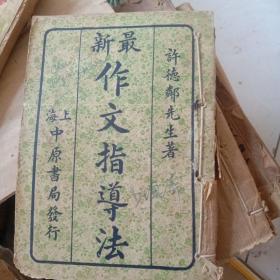 許德鄰先生著
最新
作文指導法
上海
中原書局發行